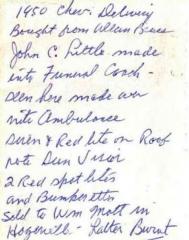 1950 Chev. Delivery
Bought from Allan Bruce
John C. Little made
into Funeral Coach -
Seen here made over
into Ambulance
Siren & Red lite on Roof
note Sun Visor
2 Red spot lites
and Bumperettes
Sold to Wm Mott in
Hagersville - Later Burnt